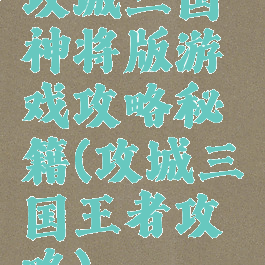 攻城三国
神将版游
戏攻略秘
籍(攻城三
国王者攻
略)